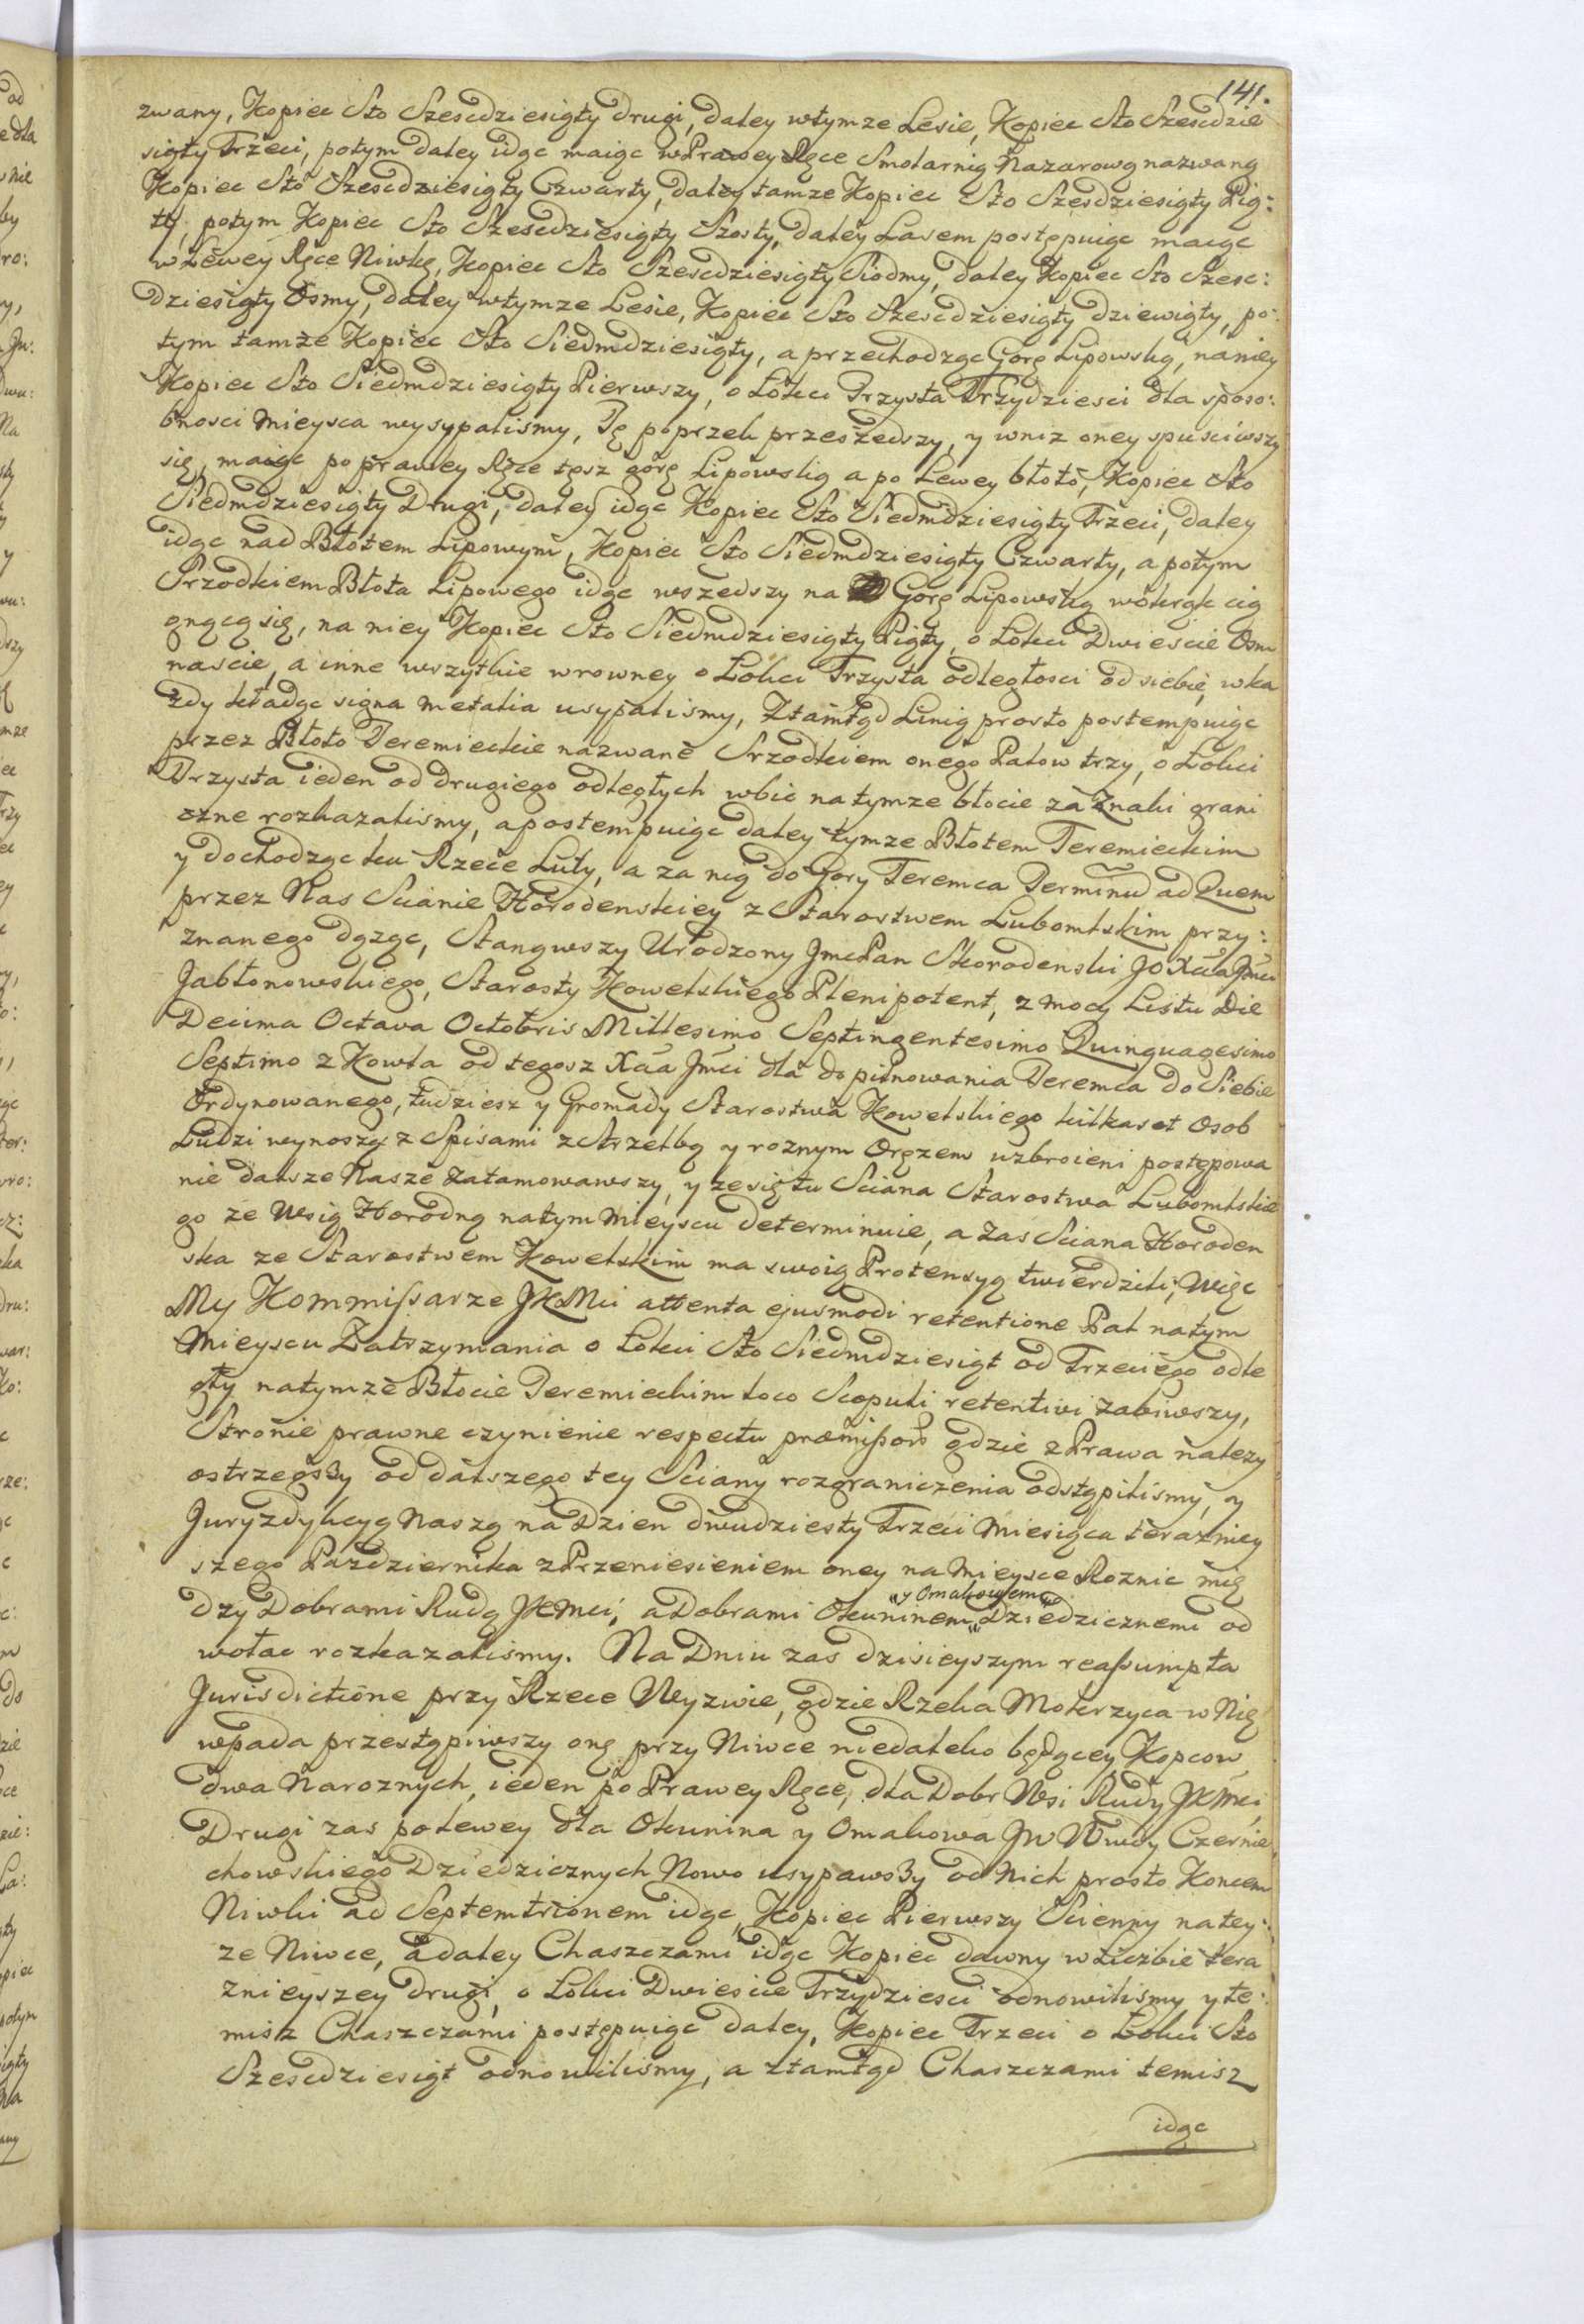 141.
zwany, Kopiec Sto Szescdziesiąty Drugi, daley wtymze Lesie, Kopiec Sto Szescdzie
siąty Trzeci, potym daley idąc maiąc w Prawey Ręce Smolarnią Nazarową nazwaną
Kopiec Sto Szescdziesiąty Czwarty, daley tamze Kopiec Sto Szesdziesiąty Pią:
ty, potym Kopiec Sto Szescdziesiąty Szosty, daley Lasem postępuiąc maiąc
w Lewey Ręce Niwkę, Kopiec Sto Szescdziesiąty Siodmy, daley Kopiec Sto Szesc:
dziesiąty Osmy, daley wtymze Lesie, Kopiec Sto Szescdziesiąty dziewiąty, po:
tym tamze Kopiec Sto Siedmdziesiąty, a przechodząc Gorę Lipowską, naniey
Kopiec Sto Siedmdziesiąty Pierwszy, o Łokci Trzysta Trzydziesci dla sposo:
bnosci Mieysca wysypalismy, Tę poprzek przeszedszy, y wniz oney spusciwszy
się, maiąc po prawey Ręce tęsz gorę Lipowską a po Lewey błoto, Kopiec Sto
Siedmdziesiąty Drugi, daley idąc Kopiec Sto Siedmdziesiąty Trzeci, daley
idąc nad Błotem Lipowym, Kopiec Sto Siedmdziesiąty Czwarty, a potym
Srzodkiem Błota Lipowego idąc wszedszy na Gorę Lipowską wokrąk cią
gnącą się, na niey Kopiec Sto Siedmdziesiąty Piąty, o Łokci Dwiescie Osm
nascie, a inne wszytkie wrowney o Łokci Trzysta odległosci od siebie, wka
zdy kładąc signa metalia usypalismy, Ztamtąd Linią prosto postempuiąc
przez Błoto Teremieckie nazwane Srzodkiem onego Palow trzy, o Łokci
Trzysta ieden od Drugiego odległych wbic natymze błocie za Znaki grani
czne rozkazalismy, a postempuiąc daley tymze Błotem Teremieckim
y dochodząc ku Rzece Luty, a za nią do Gory Teremca Terminu ad Quem
przez Nas Scianie Horodenskiey z Starostwem Lubomlskim przy:
znanego dążąc, Stanąwszy Urodzony Jmc Pan Skorodenski JO Xcia Jmci
Jabłonowskiego, Starosty Kowelskiego Plenipotent, z mocy Listu Die
Decima Octava Octobris Millesimo Septingentesimo Quinquagesimo
Septimo z Kowla od tegosz Xcia Jmci dla dopilnowania Teremca do Siebie
Ordynowanego, tudziesz y Gromady Starostwa Kowelskiego kilkaset Osob
Ludzi wynoszący z Spisami z Strzelbą y roznym Orężem uzbroieni postępowa
nie dalsze Nasze zatamowawszy, y ze się tu Sciana Starostwa Lubomlskie
go ze Wsią Horodną natym Mieyscu determinuie, a zas Sciana Horoden
ska ze Starostwem Kowelskim ma swoią Pretensyą twierdzili; Więc
My Kommissarze JKMci attenta ejusmodi retentione Pal natym
Mieyscu Zatrzymania o Łokci Sto Siedmdziesiąt od Trzeciego odle
gły natymze Błocie Teremieckim loco Scopuli retentivi zabiwszy,
Stronie prawne czynienie respectu præmissorũ gdzie z Prawa nalezy
ostrzegszy od dalszego tey Sciany rozgraniczenia odstąpilismy, y
Juryzdykcyą Naszą na Dzien dwudziesty Trzeci Miesiąca teraźniey
szego Pazdziernika z Przeniesieniem oney na Mieysce Roznic mię
dzy Dobrami Rudą JKMci, a Dobrami Okuninem "y Omakowem" Dziedzicznemi od
wołac rozkazalismy. Na Dniu zas dzisieyszym reassumpta
Jurisdictione przy Rzece Wyzwie, gdzie Rzeka Mokrzyca w Nię
wpada przestąpiwszy onę przy Niwce niedaleko będącey Kopcow
dwa Naroznych, ieden po Prawey Ręce, dla Dobr Wsi Rudy JKMci,
Drugi zas po lewey dla Okunina y Omakowa JW Wwdy Czernie
chowskiego Dziedzicznych Nowo usypawszy od Nich prosto Koncem
Niwki ad Septemtrionem idąc, Kopiec Pierwszy Scienny natey:
ze Niwce, a daley Chaszczami idąc Kopiec dawny w Liczbie tera
znieyszey drugi, o Łokci Dwiescie Trzydziesci odnowilismy y te:
misz Chaszczami postępuiąc daley, Kopiec Trzeci o Łokci Sto
Szescdziesiąt odnowilismy, a ztamtąd Chaszczami temisz
idąc